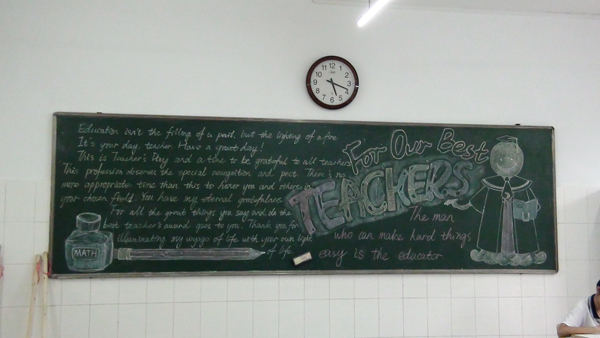 Education isn't the filling of a pail, but the lighting of a fire
It's your day, teacher Have a great day!
This is Teacher's Day and a time to be grateful to all teachers
This profession deserves the special recognition and There is no
more appropriate time than this to honor you and others in
your chosen field. You have my eternal gratefulness
For all the great things you say and do the
best teacher's award goes to you. Thank you for
illuminating my voyage of life with your own light
of life
MATH
For Our Best
TEACKERS
The man
who can make hard things
easy is the educator